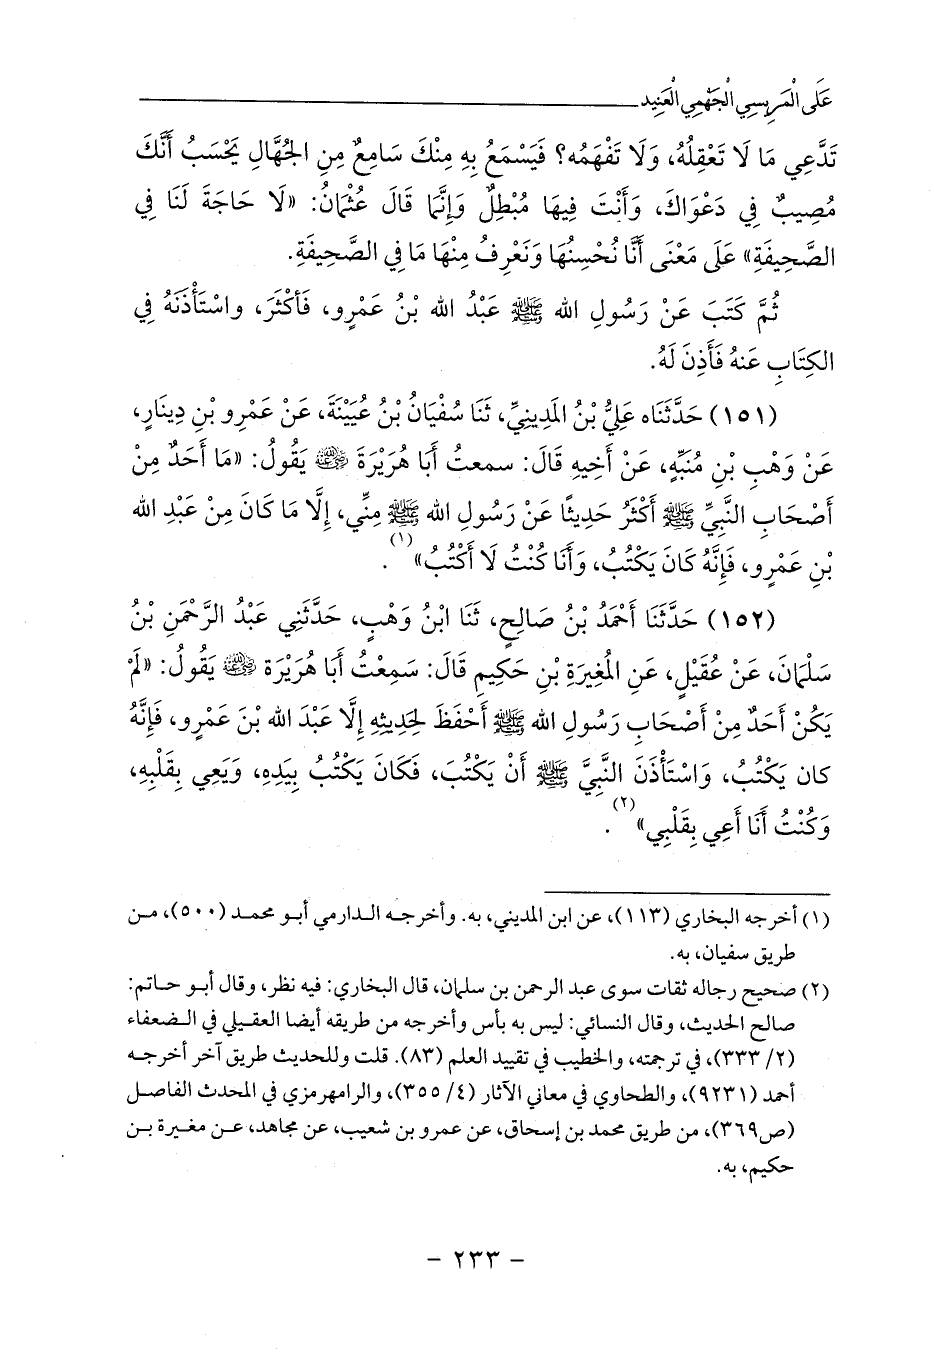 عَلَى الْمَرِيسِي الْجَهْمِي الْعَنِيد
تَدَّعِي مَا لَا تَعْقِلُهُ، وَلَا تَفْهَمُه؟ فَيَسْمَعُ بِهِ مِنْكَ سَامِعٌ مِنِ الجُهَّالِ يَحْسَبُ أَنَّكَ
مُصِيبٌ فِي دَعْوَاكَ، وَأَنْتَ فِيهَا مُبْطِلٌ وَإِنَّمَا قَالَ عُثْمَانُ: «لَا حَاجَةَ لَنَا فِي
الصَّحِيفَةِ» عَلَى مَعْنَى أَنَّا نُحْسِنُهَا وَنَعْرِفُ مِنْهَا مَا فِي الصَّحِيفَةِ.
ثُمَّ كَتَبَ عَنْ رَسُولِ الله ﷺ عَبْدُ الله بْنُ عَمْرٍو، فَأَكْثَرَ، واسْتَأْذَنَهُ فِي
الكِتَابِ عَنهُ فَأَذِنَ لَهُ.
(١٥١) حَدَّثَنَاه عَلِيُّ بْنُ المَدِينِيِّ، ثَنَا سُفْيَانُ بْنُ عُيَيْنَةَ، عَنْ عَمْرِو بْنِ دِينَارٍ،
عَنْ وَهْبِ بْنِ مُنَبِّهٍ، عَنْ أَخِيهِ قَالَ: سمعتُ أَبَا هُرَيْرَةَ ﵁ يَقُولُ: «مَا أَحَدٌ مِنْ
أَصْحَابِ النَّبِيِّ ﷺ أَكْثَرُ حَدِيثًا عَنْ رَسُولِ الله ﷺ مِنِّي، إِلَّا مَا كَانَ مِنْ عَبْدِ الله
بْنِ عَمْرٍو، فَإِنَّهُ كَانَ يَكْتُبُ، وَأَنَا كُنْتُ لَا أَكْتُبُ»(١).
(١٥٢) حَدَّثَنَا أَحْمَدُ بْنُ صَالِحٍ، ثَنَا ابْنُ وَهْبٍ، حَدَّثَنِي عَبْدُ الرَّحْمَنِ بْنُ
سَلْمَانَ، عَنْ عُقَيْلٍ، عَنِ المُغِيرَةِ بْنِ حَكِيمٍ قَالَ: سَمِعْتُ أَبَا هُرَيْرَةَ ﵁ يَقُولُ: «لَمْ
يَكُنْ أَحَدٌ مِنْ أَصْحَابِ رَسُولِ الله ﷺ أَحْفَظَ لِحَدِيثِهِ إِلَّا عَبْدَ الله بْنَ عَمْرٍو، فَإِنَّهُ
كان يَكْتُبُ، وَاسْتَأْذَنَ النَّبِيَّ ﷺ أَنْ يَكْتُبَ، فَكَانَ يَكْتُبُ بِيَدِهِ، وَيَعِي بِقَلْبِهِ،
وَكُنْتُ أَنَا أَعِي بِقَلْبِي»(٢).
(١) أخرجه البخاري (١١٣)، عن ابن المديني، به. وأخرجه الدارمي أبو محمد (٥٠٠)، من
طريق سفيان، به.
(٢) صحيح رجاله ثقات سوى عبد الرحمن بن سلمان، قال البخاري: فيه نظر، وقال أبو حاتم:
صالح الحديث، وقال النسائي: ليس به بأس وأخرجه من طريقه أيضا العقيلي في الضعفاء
(٢/ ٣٣٣)، في ترجمته، والخطيب في تقييد العلم (٨٣). قلت وللحديث طريق آخر أخرجه
أحمد (٩٢٣١)، والطحاوي في معاني الآثار (٤/ ٣٥٥)، والرامهرمزي في المحدث الفاصل
(ص٣٦٩)، من طريق محمد بن إسحاق، عن عمرو بن شعيب، عن مجاهد، عن مغيرة بن
حكيم، به.
- ٢٣٣ -